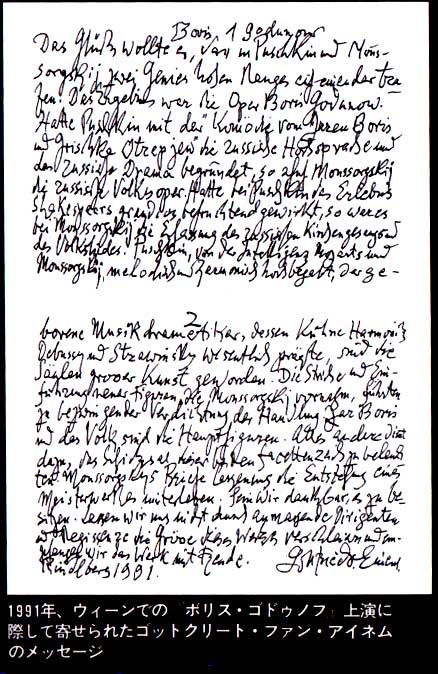 Boris 1 Godunow
Das Glück wollte es, dass Puschkin und Mous-
sorgskij zwei Genies hohen Ranges aufeinander tra-
fen. Das Ergebnis war die Oper Boris Godunow.
Hatte Puschkin mit der "Komödie vom Zaren Boris
und Grischka Otrepjew die russische Hochsprache und
das russische Drama begründet, so schuf Moussorgskij
die russische Volksoper. Hatte bei Puschkin das Erlebnis
Shakespeares grandios befruchtend gewirkt, so war es
bei Moussorgskij die Erfassung des russischen Kirchengesangs und
des Volksliedes. Puschkin, von der Intelligenz Mozarts und
Moussorgskij, melodisch und harmonisch hochbegabt, der ge-
2
borene Musikdramatiker, dessen kühne Harmonik
Debussy und Strawinsky wesentlich prägte, sind die
Säulen grosser Kunst geworden. Die Striche und Ein-
führung neuer Figuren, die Moussorgskij vornahm, führten
zu bezwingender Verdichtung der Handlung. Zar Boris
und das Volk sind die Hauptfiguren. Alles andere dient
dazu, das Schicksal dieser beiden facettenreich zu beleuch-
ten. Moussorgskys Briefe lassen uns die Entstehung eines
Meisterwerkes miterleben. Seien wir dankbar, es zu be-
sitzen. Lassen wir uns nicht durch anmassende Dirigenten
und Regisseure die Grösse des Werkes verschleiern und em-
wir das Werk mit Freude.
Rindlberg 1991. Gottfried v. Einem
1991年、ウィーンでの「ボリス・ゴドゥノフ」上演に
際して寄せられたゴットクリート・ファン・アイネム
のメッセージ